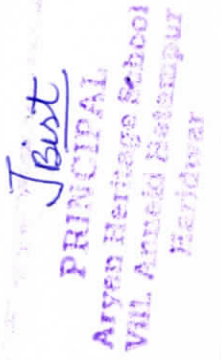 JBist
PRINCIPAL
Aryan Heritage School
Vill. Anneki Hetampur
Haridwar